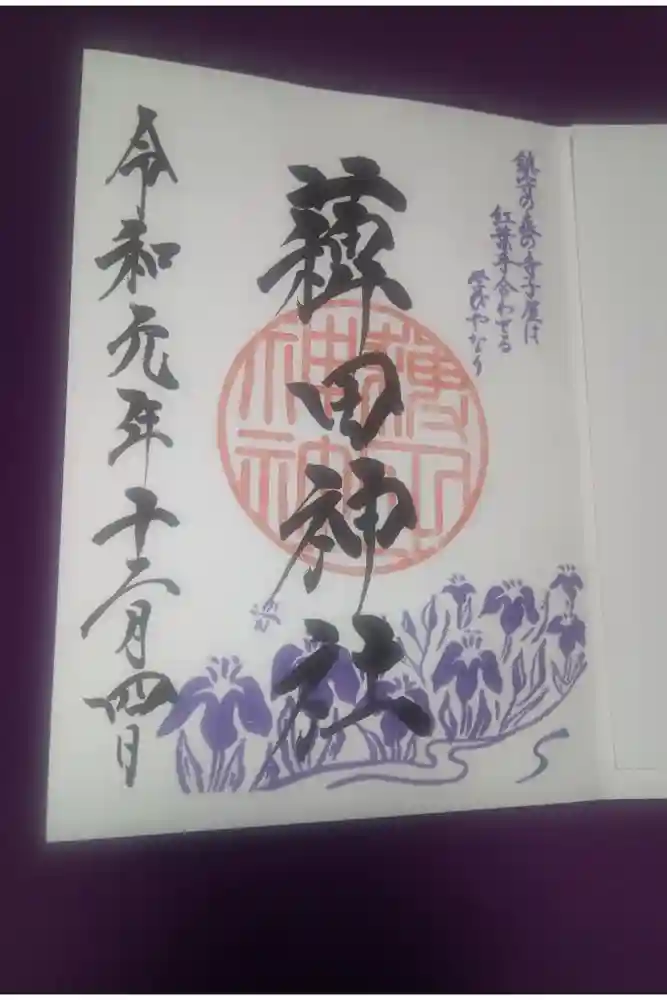 鎮守の森の寺子屋は
紅葉手合わせる
学びやなり
薭田神社
令和元年十二月四日